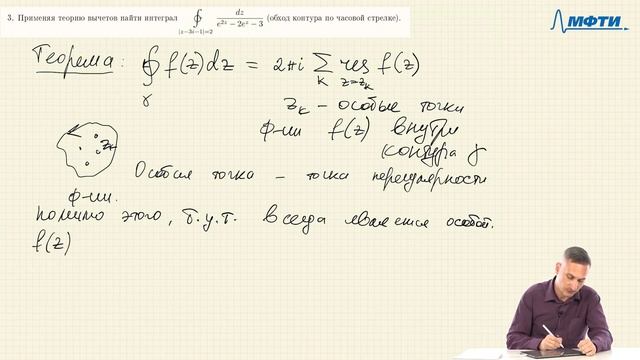 3. Применяя теорию вычетов найти интеграл ∮ dz / (e^{2z} − 2e^z − 3) (обход контура по часовой стрелке).
|z−3i−1|=2
МФТИ
Теорема: ∮ f(z)dz = 2πi ∑ res f(z)
γ K z=z_k
z_k – особые точки
ф-ии f(z) внутри
контура γ
z_k
Особая точка – точка нерегулярности
ф-ии.
Помимо этого, б.у.т. всегда является особой.
f(z)